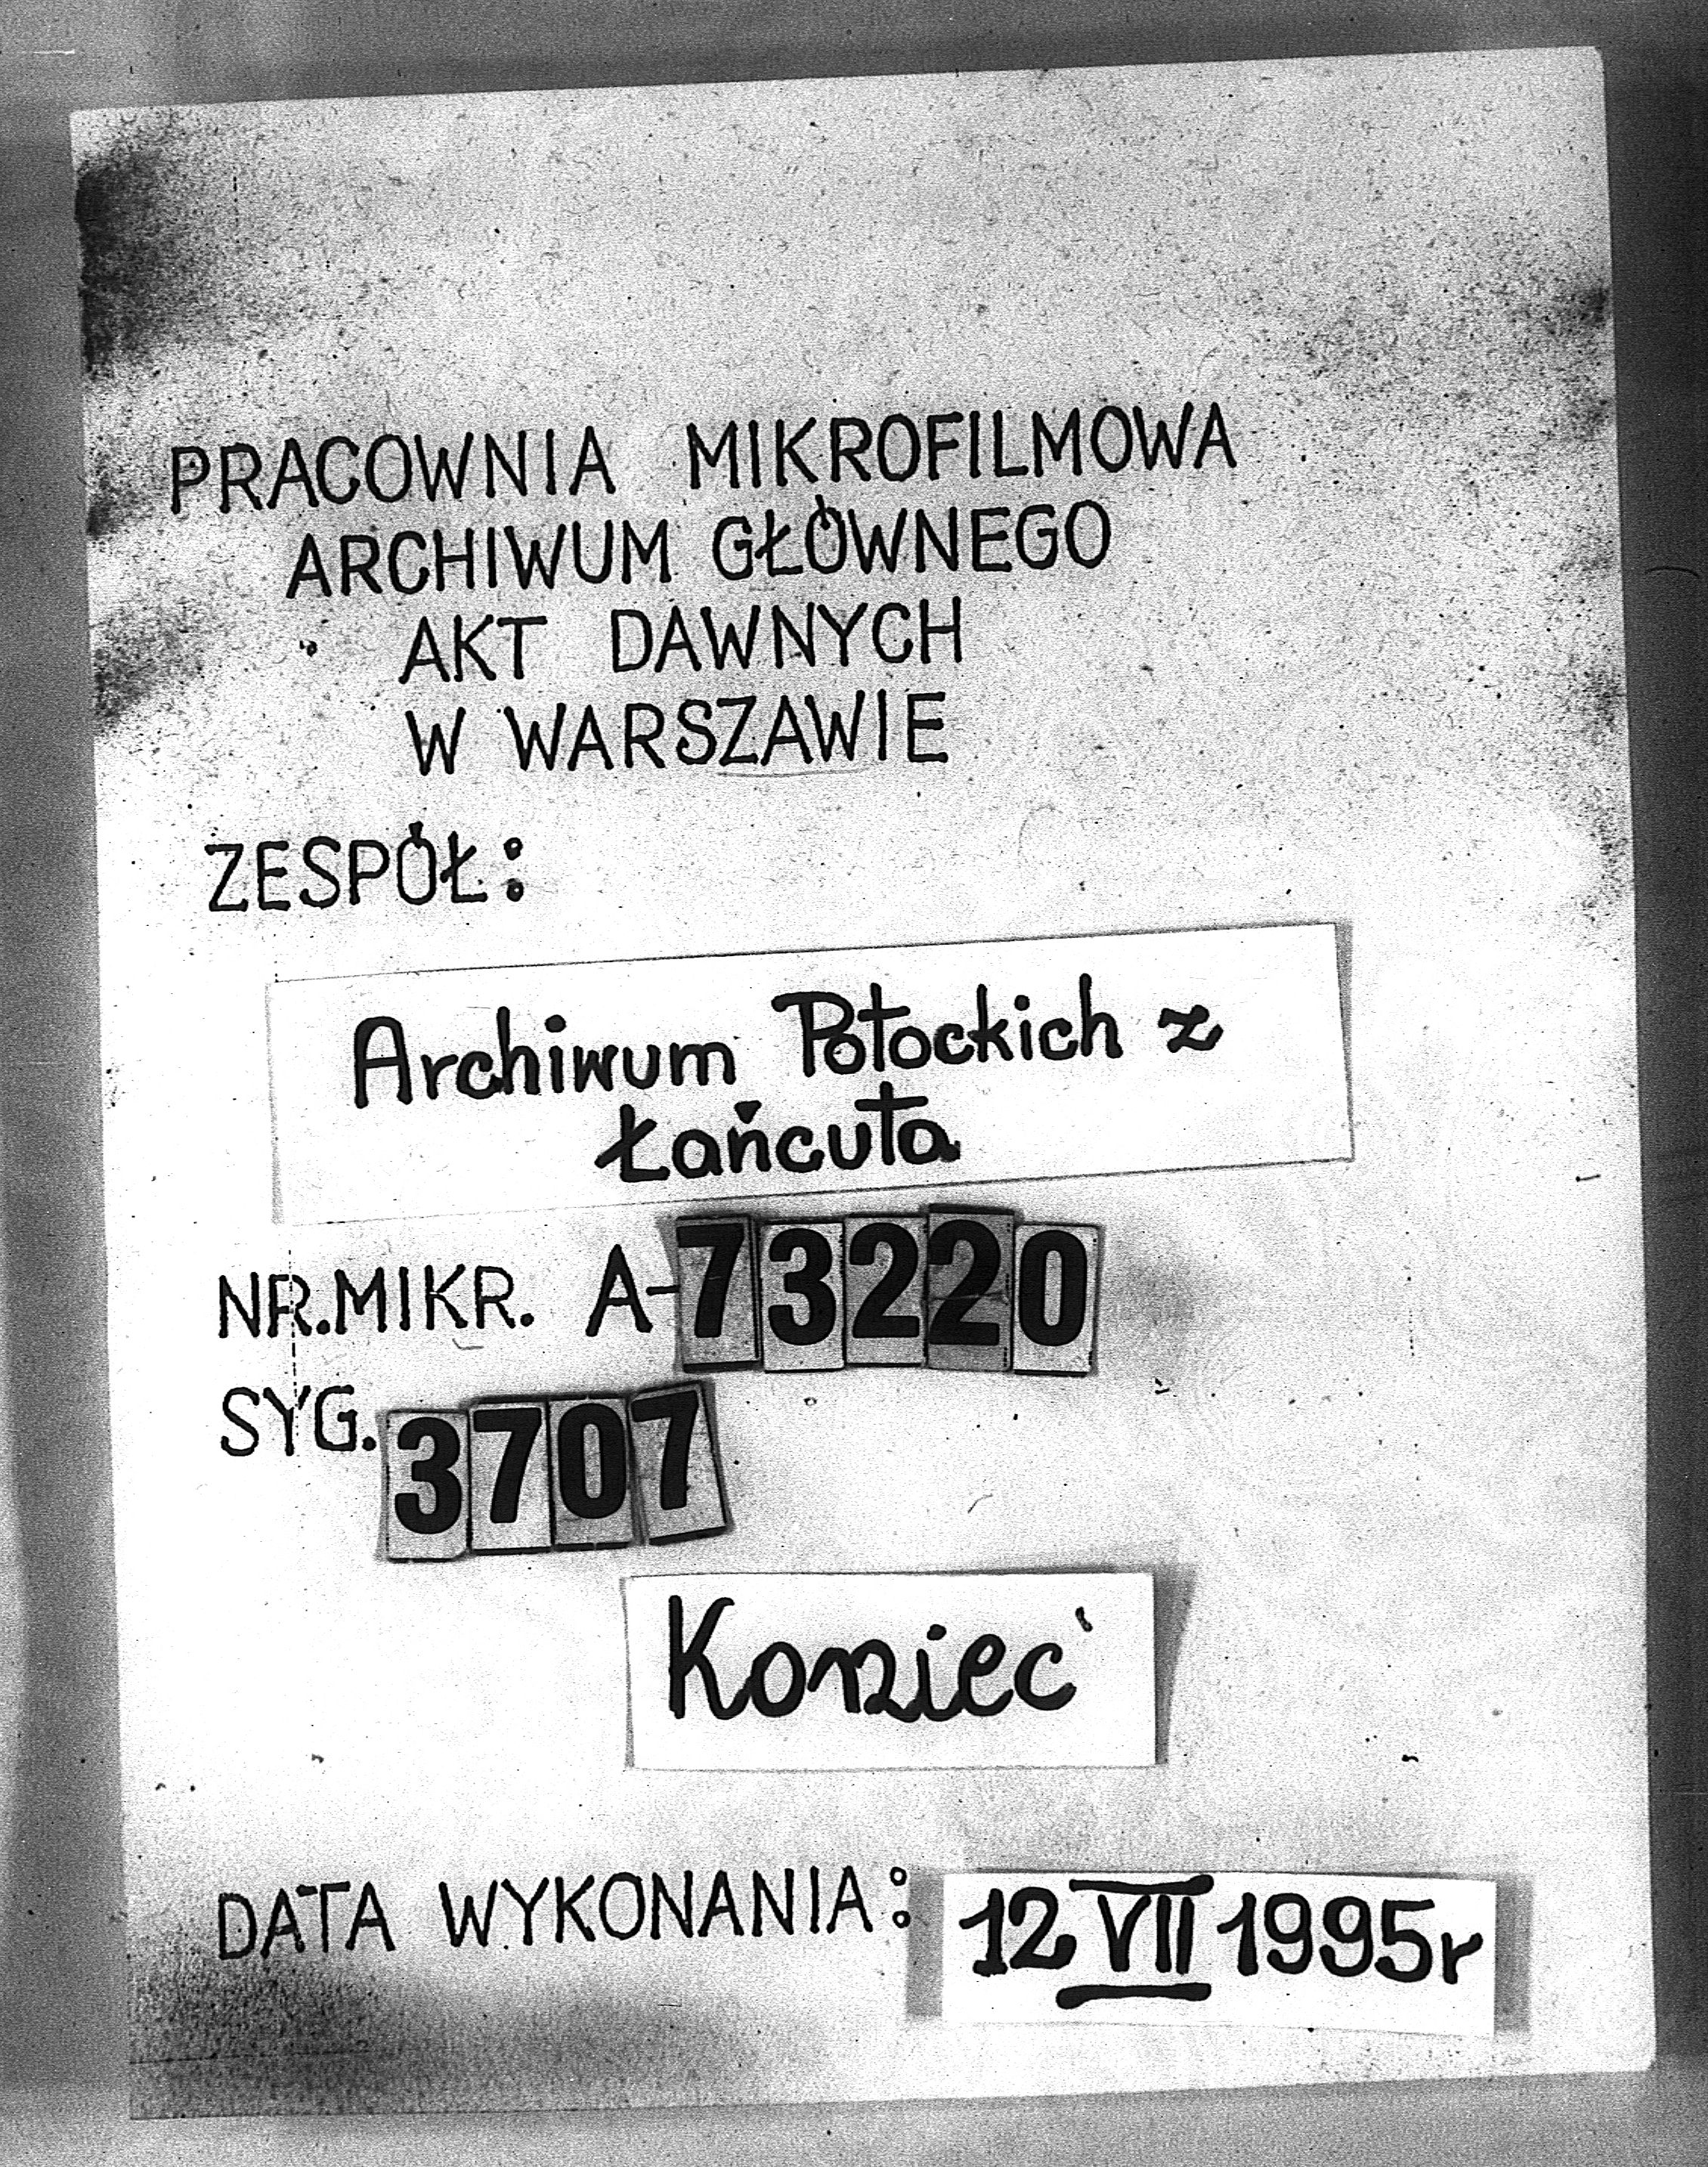 PRACOWNIA MIKROFILMOWA
ARCHIWUM GŁÓWNEGO
AKT DAWNYCH
W WARSZAWIE
ZESPÓŁ:
Archiwum Potockich z
Łańcuta
NR.MIKR. A-73220
SYG. 3707
Koniec
DATA WYKONANIA: 12 VII 1995r